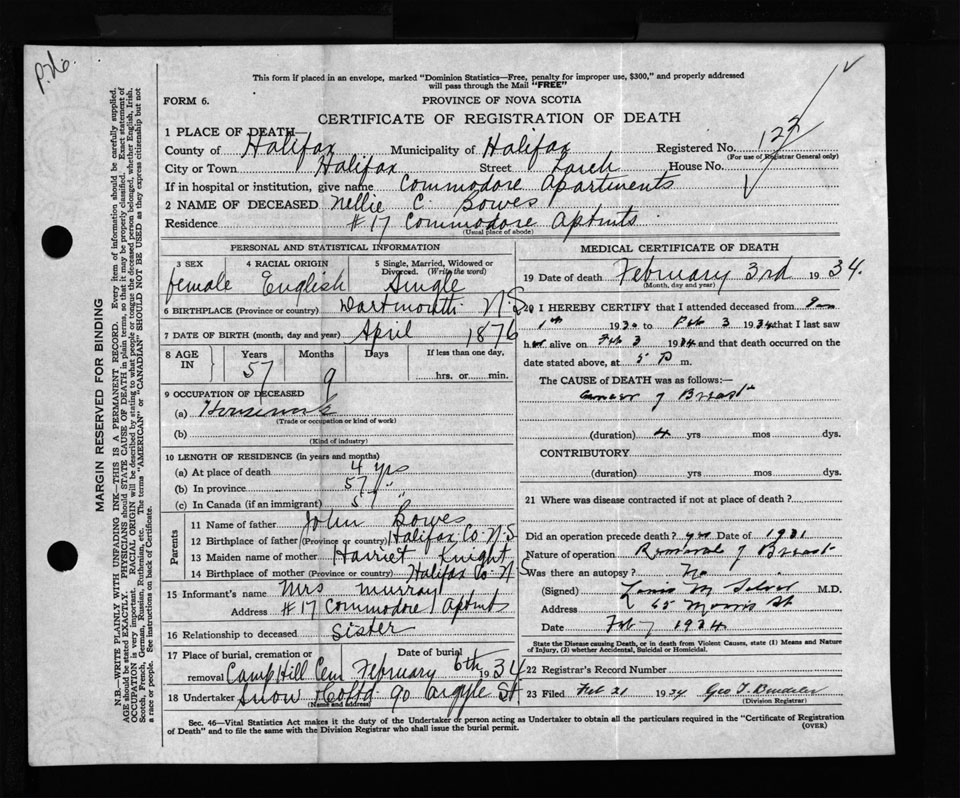 This form if placed in an envelope, marked "Dominion Statistics—Free, penalty for improper use, $300," and properly addressed
will pass through the Mail "FREE"
FORM 6. PROVINCE OF NOVA SCOTIA
CERTIFICATE OF REGISTRATION OF DEATH
1 PLACE OF DEATH—
County of Halifax Municipality of Halifax Registered No. 122
(For use of Registrar General only)
City or Town Halifax Street House No.
If in hospital or institution, give name Commodore Apartments
2 NAME OF DECEASED Nellie C. Bowes
Residence #17 Commodore Aptmts
(Usual place of abode)
PERSONAL AND STATISTICAL INFORMATION
3 SEX 4 RACIAL ORIGIN 5 Single, Married, Widowed or Divorced. (Write the word)
female English Single
6 BIRTHPLACE (Province or country) Dartmouth N.S.
7 DATE OF BIRTH (month, day and year) April 1876
8 AGE IN Years Months Days If less than one day,
57 9 hrs. or min.
9 OCCUPATION OF DECEASED
(a) Housework
(Trade or occupation or kind of work)
(b)
(Kind of industry)
10 LENGTH OF RESIDENCE (in years and months)
(a) At place of death 4 yrs
(b) In province 57 "
(c) In Canada (if an immigrant) 57 "
Parents
11 Name of father John Bowes
12 Birthplace of father (Province or country) Halifax Co. N.S
13 Maiden name of mother Harriet Knight
14 Birthplace of mother (Province or country) Halifax Co. N S
15 Informant's name Mrs Murray
Address #17 Commodore Aptmts
16 Relationship to deceased Sister
17 Place of burial, cremation or removal Date of burial
Camp Hill Cem February 6th 1934
18 Undertaker Snow & Co Ltd 90 Argyle St
(Name and address)
MEDICAL CERTIFICATE OF DEATH
19 Date of death February 3rd 1934.
(Month, day and year)
20 I HEREBY CERTIFY that I attended deceased from
1st 1930 to Feb 3 1934 that I last saw
her alive on Feb 3 1934 and that death occurred on the
date stated above, at 5 P m.
The CAUSE of DEATH was as follows:—
Cancer of Breast
(duration) 4 yrs mos dys.
CONTRIBUTORY
(duration) yrs mos dys.
21 Where was disease contracted if not at place of death?
Did an operation precede death? yes Date of 1931
Nature of operation Removal of Breast
Was there an autopsy? No
(Signed) Louis M Silver M.D.
Address 65 Morris St
Date Feb 7 1934
State the Disease causing Death, or in death from Violent Causes, state (1) Means and Nature
of Injury, (2) whether Accidental, Suicidal or Homicidal.
22 Registrar's Record Number
23 Filed Feb 21 1934 Geo T.
(Division Registrar)
Sec. 46—Vital Statistics Act makes it the duty of the Undertaker or person acting as Undertaker to obtain all the particulars required in the "Certificate of Registration
of Death" and to file the same with the Division Registrar who shall issue the burial permit. (OVER)
MARGIN RESERVED FOR BINDING
N.B.—WRITE PLAINLY WITH UNFADING INK—THIS IS A PERMANENT RECORD. Every item of information should be carefully supplied.
AGE should be stated EXACTLY. PHYSICIANS should STATE CAUSE OF DEATH in plain terms, so that it may be properly classified. Exact statement of
OCCUPATION is very important. RACIAL ORIGIN will be described by stating to what people or tongue the deceased person belonged, whether English, Irish,
Scotch, French, German, Russian, Ruthenian, etc. The terms "AMERICAN" or "CANADIAN" SHOULD NOT BE USED as they express citizenship but not
a race or people. See instructions on back of Certificate.